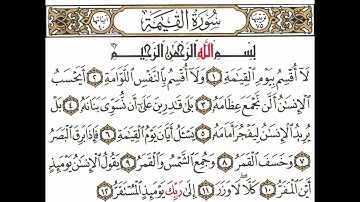 سُورَةُ الْقِيَامَةِ
بِسْمِ اللَّهِ الرَّحْمَٰنِ الرَّحِيمِ
لَا أُقْسِمُ بِيَوْمِ الْقِيَٰمَةِ ١ وَلَا أُقْسِمُ بِالنَّفْسِ اللَّوَّامَةِ ٢ أَيَحْسَبُ
الْإِنسَٰنُ أَلَّن نَّجْمَعَ عِظَامَهُ ٣ بَلَىٰ قَٰدِرِينَ عَلَىٰ أَن نُّسَوِّيَ بَنَانَهُ ٤ بَلْ
يُرِيدُ الْإِنسَٰنُ لِيَفْجُرَ أَمَامَهُ ٥ يَسْـَٔلُ أَيَّانَ يَوْمُ الْقِيَٰمَةِ ٦ فَإِذَا بَرِقَ الْبَصَرُ
٧ وَخَسَفَ الْقَمَرُ ٨ وَجُمِعَ الشَّمْسُ وَالْقَمَرُ ٩ يَقُولُ الْإِنسَٰنُ يَوْمَئِذٍ
أَيْنَ الْمَفَرُّ ١٠ كَلَّا لَا وَزَرَ ١١ إِلَىٰ رَبِّكَ يَوْمَئِذٍ الْمُسْتَقَرُّ ١٢